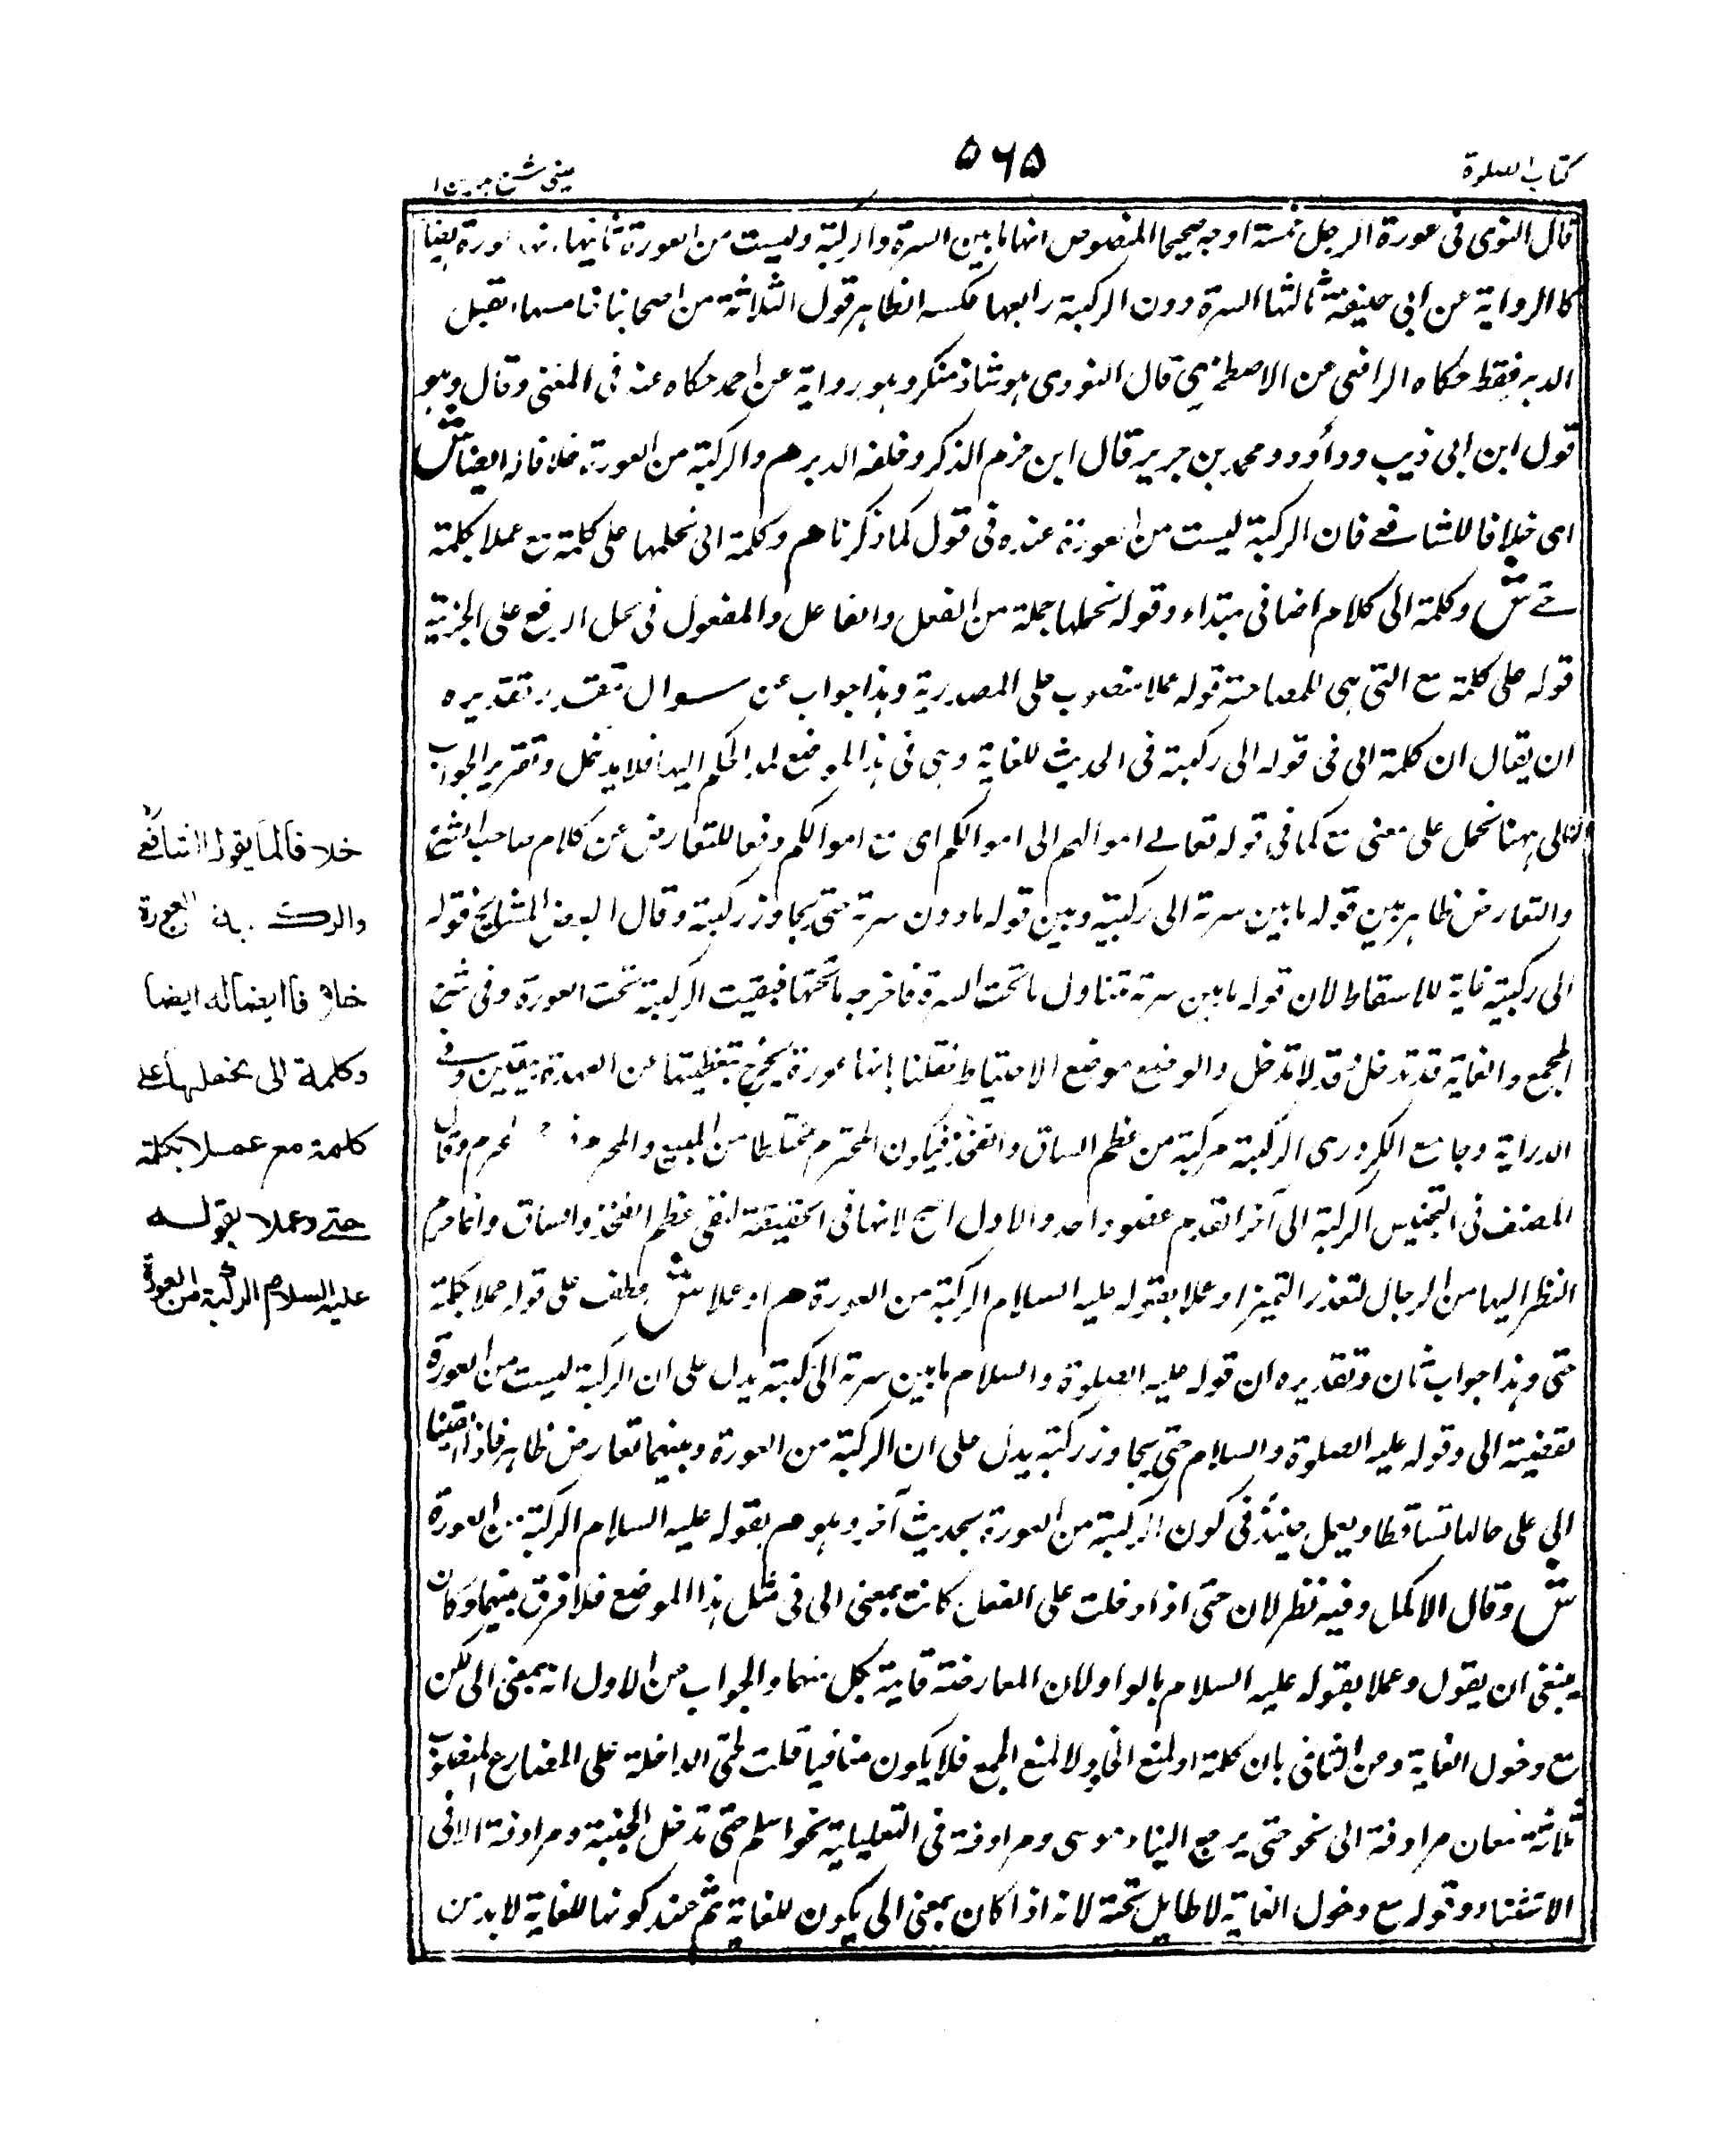 كتاب الصلوة
۵۶۵
عینی شرح ہدایہ ج ۱
قال النووى فى عورة الرجل خمسة اوجه صحيحا المنصوص انها ما بين السرة والركبة وليست من العورة ثانيها انها عورة ايضا
كالرواية عن ابى حنيفة ثالثها السرة دون الركبة رابعها عكسه الظاهر قول الثلاثة من اصحابنا خامسها القبل
الدبر فقط حكاه الرافعى عن الاصطخرى قال النووى هو شاذ منكر وهو رواية عن احمد حكاه عنه فى المغنى وقال وهو
قول ابن ابى ذيب وداؤد ومحمد بن جرير قال ابن حزم الذكر وخلقه الدبر هم والركبة من العورة خلافا له ايضا ش
اى خلافا للشافعے فان الركبة ليست من العورة عنده فى قول كما ذكرنا هم وكلمة الى نحملها على كلمة مع عملا بكلمة
حتے ش وكلمة الى كلام اضافى مبتداء وقوله نحملها جملة من الفعل والفاعل والمفعول فى محل الرفع على الخبرية
قوله على كلمة مع التى هى للمصاحبة قوله عملا منصوب على المصدرية وهذا جواب عن سوال مقدر تقديره
ان يقال ان كلمة الى فى قوله الى ركبته فى الحديث للغاية وهى فى هذا الموضع لمد الحكم اليها فلا يدخل وتقرير الجواب
ان الى ههنا نحمل على معنى مع كما فى قوله تعالے اموالهم الى اموالكم اى مع اموالكم دفعا للتعارض عن كلام صاحب الشرع
والتعارض ظاهر بين قوله ما بين سرته الى ركبتيه وبين قوله ما دون سرته حتى يجاوز ركبته وقال البعض المشايخ قوله
الى ركبتيه غاية للاسقاط لان قوله ما بين سرته متناول ما تحت السرة فاخرجه ما تحتها فبقيت الركبة تحت العورة وفى شرح
المجمع والغاية قد تدخل وقد لا تدخل والوضع موضع الاحتياط فقلنا بانها عورة يخرج بتغطيتها عن العهدة بيقين وفى
الدراية وجامع الكرورى الركبة مركبة من عظم الساق والفخذ فيكون المحترم مختلطا من المبيح والمحرم المحرم وقال
المصنف فى التجنيس الركبة الى آخر القدم عضو واحد والاول اصح لانها فى الحقيقة لتقى عظم الفخذ والساق وانما حرم
النظر اليها من الرجال لتعذر التميز او عملا بقوله عليه السلام الركبة من العورة هم او عملا ش عطف على قوله عملا بكلمة
حتى وهذا جواب ثان وتقديره ان قوله عليه الصلوة والسلام ما بين سرته الى ركبته يدل على ان الركبة ليست من العورة
لقضية الى وقوله عليه الصلوة والسلام حتى يجاوز ركبته يدل على ان الركبة من العورة وبينهما تعارض ظاهر فاذا ابقينا
الى على حالها تساقطا ويعمل حينئذ فى كون الركبة من العورة بحديث آخر وهو هم بقوله عليه السلام الركبة من العورة
ش وقال الاكمل وفيه نظر لان حتى اذا دخلت على الفعل كانت بمعنى الى فى مثل هذا الموضع فلا فرق بينهما وكان
ينبغى ان يقول وعملا بقوله عليه السلام بالواو لان المعارضة قاية بكل منهما والجواب من الاول انه بمعنى الى لكن
مع دخول الغاية ومن الثانى بان كلمة او لمنع الخلو لا لمنع الجمع فلا يكون منافيا قلت لحتى الداخلة على المضارع المنصوب
ثلاثة معان مرادفة الى نحو حتى يرجع الينا موسى ومرادفة فى التعليلية نحو اسلم حتى تدخل الجنة ومرادفة الا فى
الاستثناء وقوله مع دخول الغاية لا طايل تحته لانه اذا كان بمعنى الى يكون للغاية ثم عند كونها للغاية لا بد من
خلافا لما يقوله الشافعے
والركبة من العورة
خلافا ايضا له ايضا
وكلمة الى نحملها علے
كلمة مع عملا بكلمة
حتے وعملا بقوله
عليه السلام الركبة من العورة